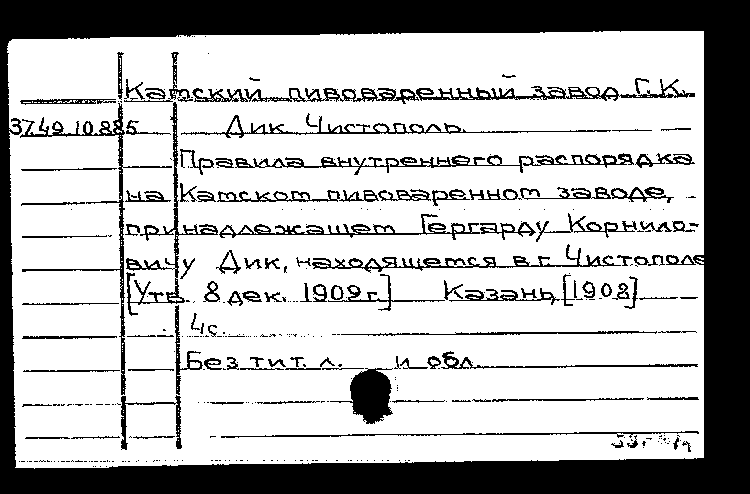 Катский пивоваренный завод Г.К.
37.49.10.885 Дик. Чистополь.
Правила внутреннего распорядка
на Катском пивоваренном заводе,
принадлежащем Гергарду Корнило-
вичу Дик, находящемся в г. Чистополе
[Утв. 8 дек. 1909 г.] Казань, [1908]
4с.
Без тит. л. и обл.